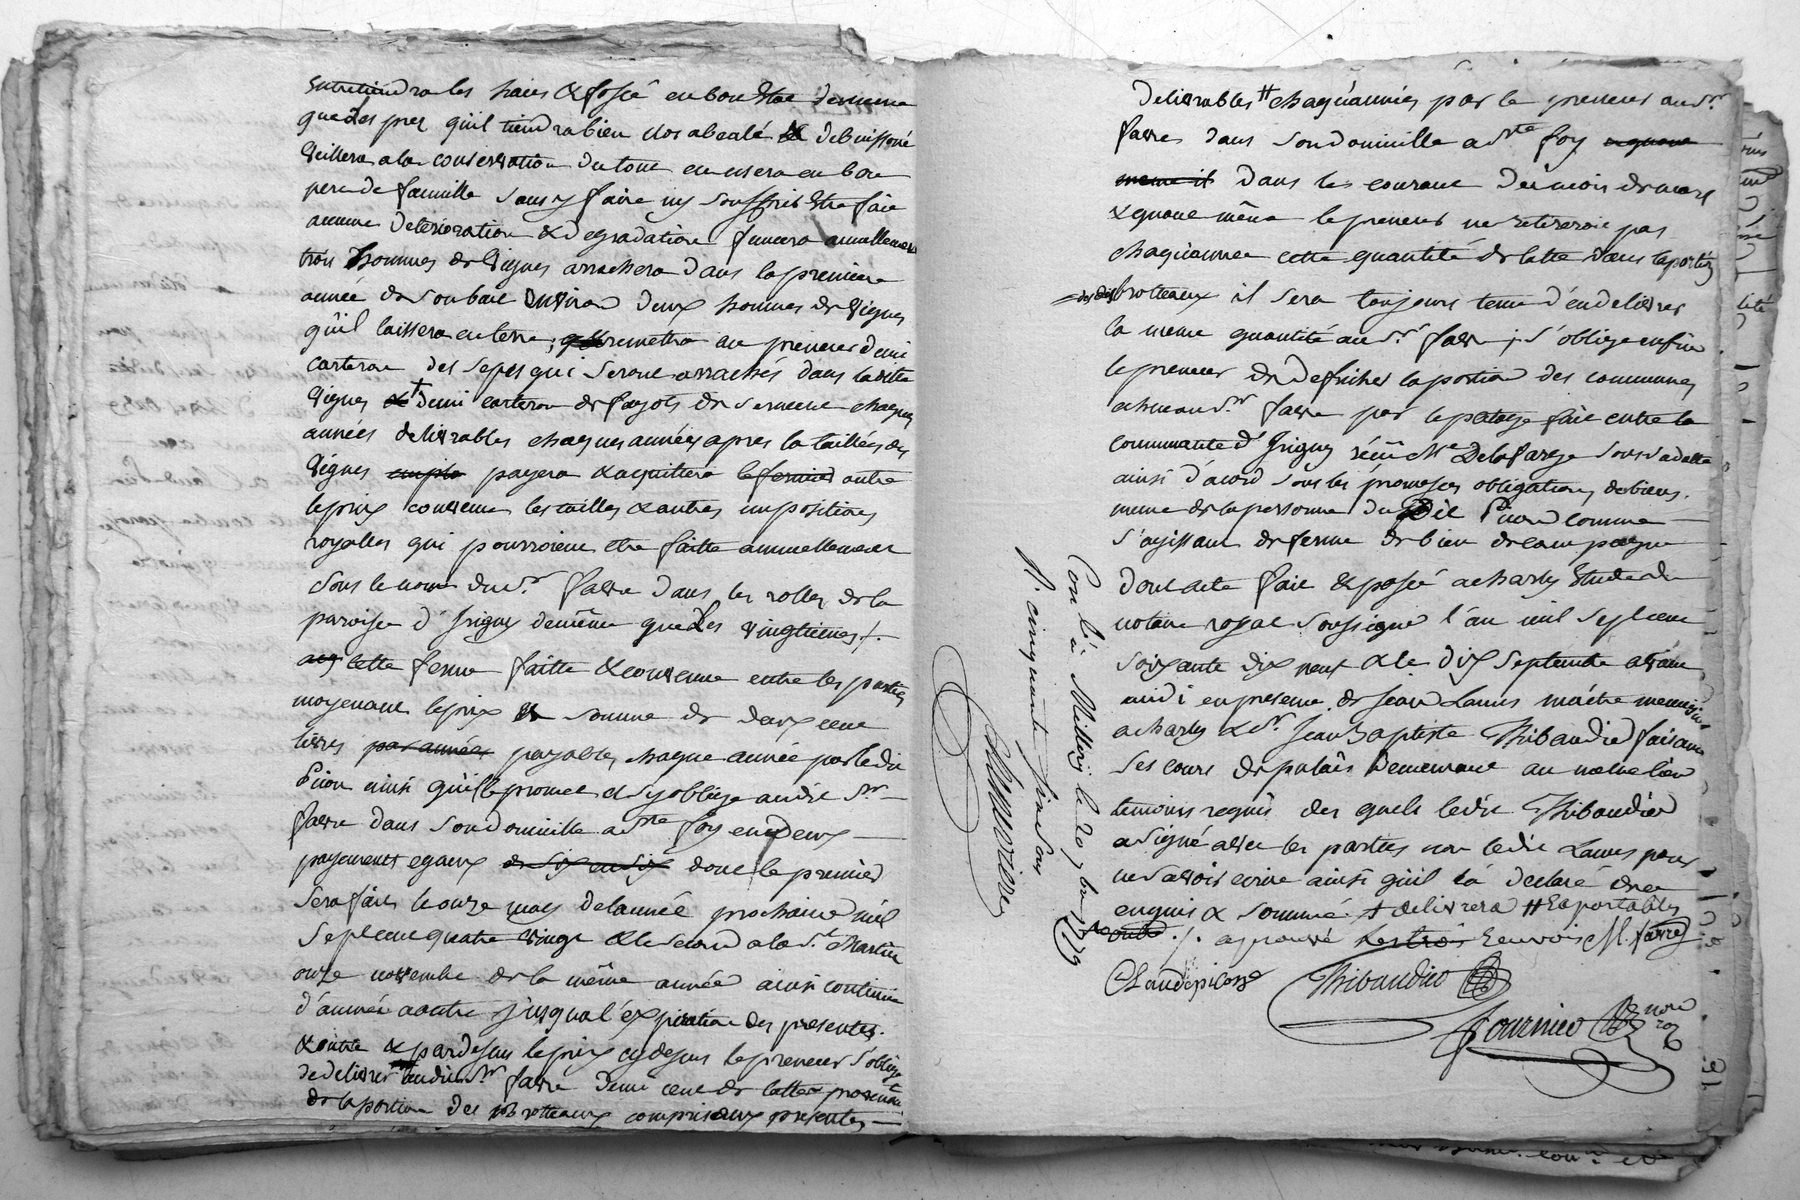 Entretiendra les haies & fossé en bon Etat de meme
que Les prez qu'il tiendra bien clos abealé & debuissoné
Veillera a la conservation du tout en usera en bon
pere de famille sans y faire ny souffrir Etre fait
aucune deterioration & degradation fumera annuellement
trois hommes de Vignes arrachera dans la premiere
année de son bail Environ deux hommes de Vignes
qu'il laissera en terre, remettra au preneur demi
carteron des seps qui seront arrachés dans la ditte
Vignes & + demi carteron de fagots de serment chaques
années delivrables chaques années apres la taillée des
Vignes payera & aquittera le fermier outre
le prix convenu les tailles & autres impositions
royalles qui pourroient etre faitte annuellement
sous le nom du Sr. favre dans les rolles de la
paroisse d'Irigny de même que Les vingtiemes ./.
cette ferme faitte & convenue entre les parties
moyenant le prix & somme de deux cent
livres par année payables chaque année par ledit
Pion ainsi qu'il le promet & s'y oblige audit Sr
favre dans son domicille a Ste foy en deux
payements egaux de six en six dont le premier
sera fait le onze may de l'année prochaine mil
sept cent quatre vingt & le second a la St. Martin
onze novembre de la même année ainsi continuer
d'année a autre jusqu'a l'expiration des presentes.
& outre & par dessus le prix cy dessus le preneur s'oblige
de delivrer audit Sr favre demi cent de lattes provenant
de la portion des brotteaux compris aux presentes
delivrables # chaqu'années par le preneur au Sr.
favre dans son domicille a Ste foy
meme il dans le courant du mois de mars
& quant même le preneur ne retireroit pas
chaqu'année cette quantité de latte dans la portion
des dits brotteaux il sera toujours tenu d'en delivrer
la meme quantité au Sr. favre, s'oblige enfin
le preneur de defricher la portion des communes
echue au Sr favre par le partage fait entre la
communauté d'Irigny De Lafarge
ainsi d'acord sous les promesses obligations de biens
meme de la personne du dit Pion comme
s'agissant de ferme de bien de campagne
Dont acte fait & passé a charly Etude du
notaire royal soussigné l'an mil sept cent
soixante dix neuf & le dix septembre avant
midi en presence de Jean Lanis maitre menuisier
a charly & Sr. Jean Baptiste Thibaudier faisant
ses cours de palais Demeurant au même lieu
temoins requis des quels ledit Thibaudier
a signé avec les parties non ledit Lanis pour
ne savoir ecrire ainsi qu'il l'a declaré de ce
enquis & sommé. + delivrera # Et portables
./. aprouvé les trois renvois M. favre
Claude pion
Thibaudier
fournier nore roy
Con lé à Millery le 20 7bre 1779
R. cinquante cinq sous